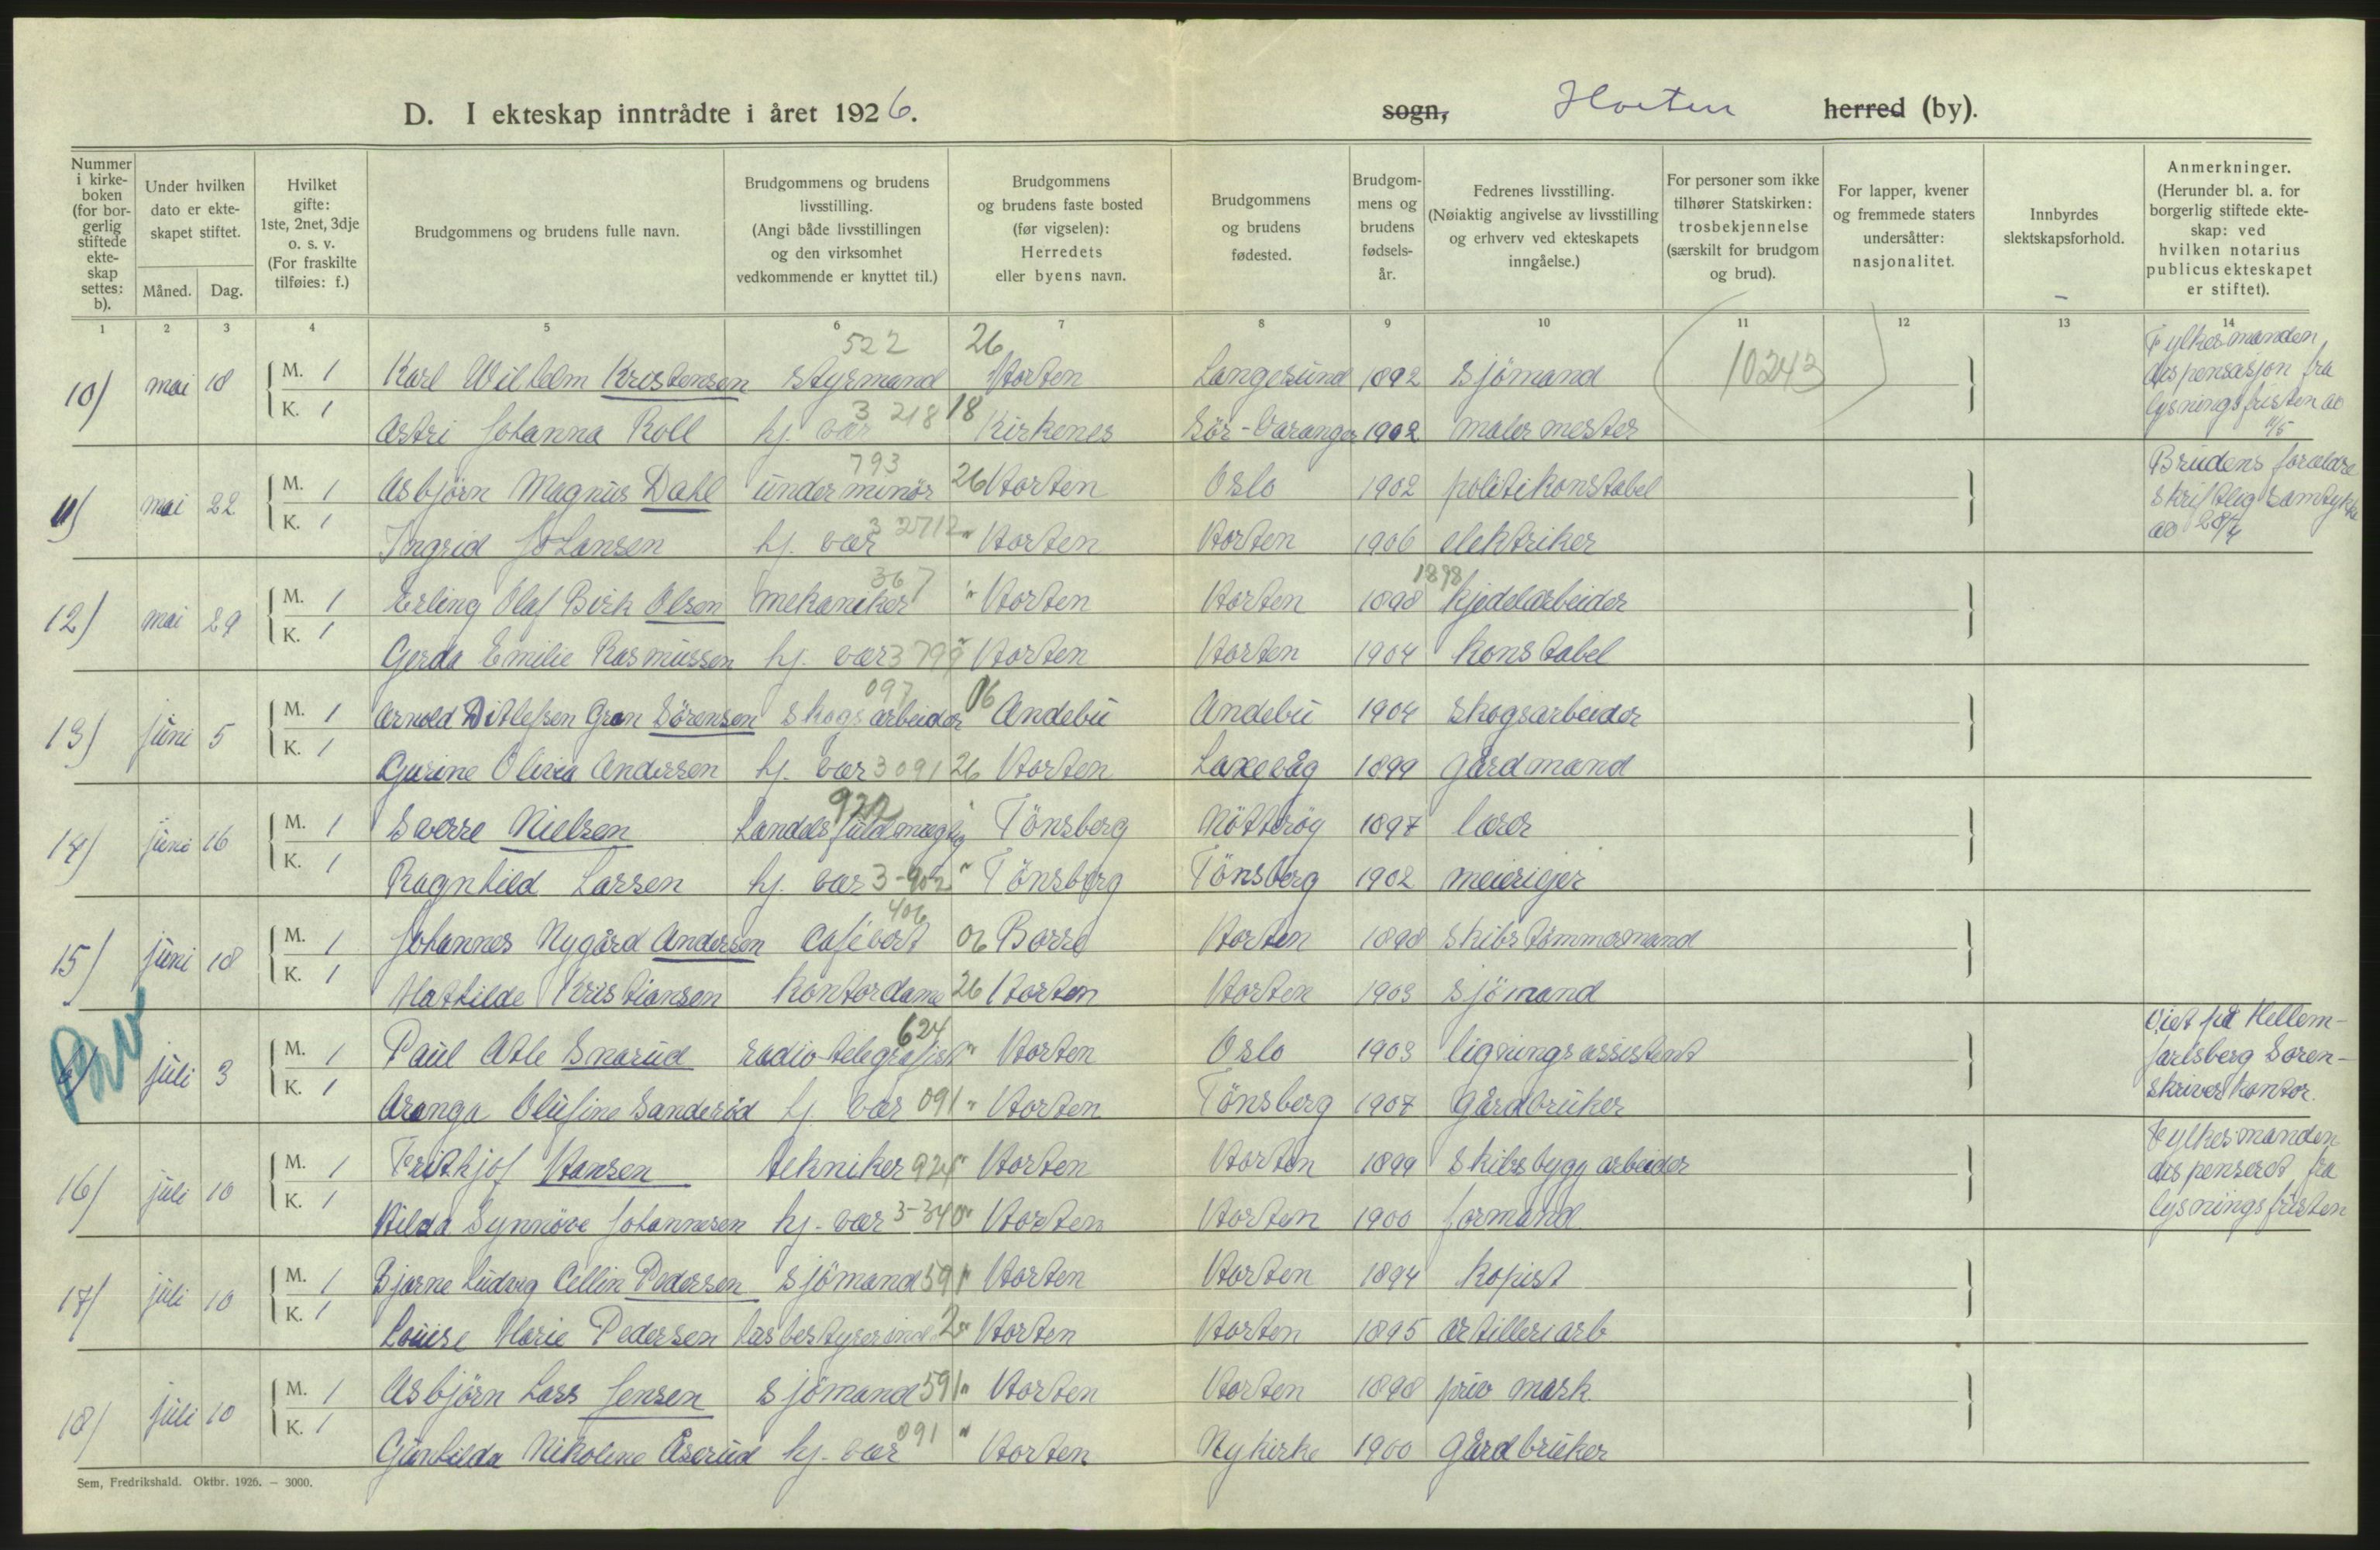 D. I ekteskap inntrådte i året 1926.
sogn, Horten herred (by).
Nummer i kirkeboken (for borgerlig stiftede ekteskap settes: b).
Under hvilken dato er ekteskapet stiftet.
Måned. Dag.
Hvilket gifte: 1ste, 2net, 3dje o. s. v. (For fraskilte tilføies: f.)
Brudgommens og brudens fulle navn.
Brudgommens og brudens livsstilling. (Angi både livsstillingen og den virksomhet vedkommende er knyttet til.)
Brudgommens og brudens faste bosted (før vigselen): Herredets eller byens navn.
Brudgommens og brudens fødested.
Brudgommens og brudens fødselsår.
Fedrenes livsstilling. (Nøiaktig angivelse av livsstilling og erhverv ved ekteskapets inngåelse.)
For personer som ikke tilhører Statskirken: trosbekjennelse (særskilt for brudgom og brud).
For lapper, kvener og fremmede staters undersåtter: nasjonalitet.
Innbyrdes slektskapsforhold.
Anmerkninger. (Herunder bl. a. for borgerlig stiftede ekteskap: ved hvilken notarius publicus ekteskapet er stiftet).
1 2 3 4 5 6 7 8 9 10 11 12 13 14
522 26
10) mai 18 M. 1 Karl Wilhelm Kristensen styrmand Horten Langesund 1892 sjömand (10243) Fylkesmanden dispensasjon fra lysningsfristen av
K. 1 Astri Johanna Roll hj. vær 3 218 18 Kirkenes Sör-Varanger 1902 malermester
793
11) mai 22 M. 1 Asbjörn Magnus Dahl underminör 26 Horten Oslo 1902 politikonstabel Brudens forældre skriftlig samtykke av 28/4
K. 1 Ingrid Johansen hj. vær 3 2712 " Horten Horten 1906 elektriker
367 1898
12) mai 29 M. 1 Erling Olaf Birk Olsen mekaniker " Horten Horten 1898 kjedelarbeider
K. 1 Gerda Emilie Rasmussen hj. vær 3 799 " Horten Horten 1904 konstabel
097 06
13) juni 5 M. 1 Arnold Ditlefsen Gran Sörensen skogsarbeider Andebu Andebu 1904 skogsarbeider
K. 1 Gurine Olivia Andersen hj. vær 3 091 26 Horten Laxevåg 1899 gårdmand
922
14) juni 16 M. 1 Sverre Nielsen handelsfuldmægtig " Tönsberg Nötteröy 1897 lærer
K. 1 Ragnhild Larsen hj. vær 3-902 " Tönsberg Tönsberg 1902 meieriejer
406
15) juni 18 M. 1 Johannes Nygård Andersen Cafévert 06 Borre Horten 1898 skibstömmermand
K. 1 Mathilde Kristiansen kontordame 26 Horten Horten 1903 sjömand
624
juli 3 M. 1 Paul Atle Snarud radio-telegrafist " Horten Oslo 1903 ligningsassistent Viet på Hellem-Jarlsberg Soren-skriverkontor.
K. 1 Aranga Olufine Sanderöd hj. vær 091 " Horten Tönsberg 1907 gårdbruker
16) juli 10 M. 1 Frithjof Hansen tekniker 924 " Horten Horten 1899 skibsbygg arbeider Fylkesmanden dispensert fra lysningsfristen
K. 1 Hilda Synnöve Johannesen hj. vær 3-340 " Horten Horten 1900 formand
17) juli 10 M. 1 Bjarne Ludvig Cellin Pedersen sjömand 591 " Horten Horten 1894 kopist
K. 1 Louise Marie Pedersen husbestyrerinde 2 " Horten Horten 1895 artilleriarb
18) juli 10 M. 1 Asbjörn Lars Jensen sjömand 591 " Horten Horten 1898 priv mask.
K. 1 Gunhilda Nikoline Åserud hj. vær 091 " Horten Nykirke 1900 gårdbruker
Sem, Fredrikshald. Oktbr. 1926. — 3000.